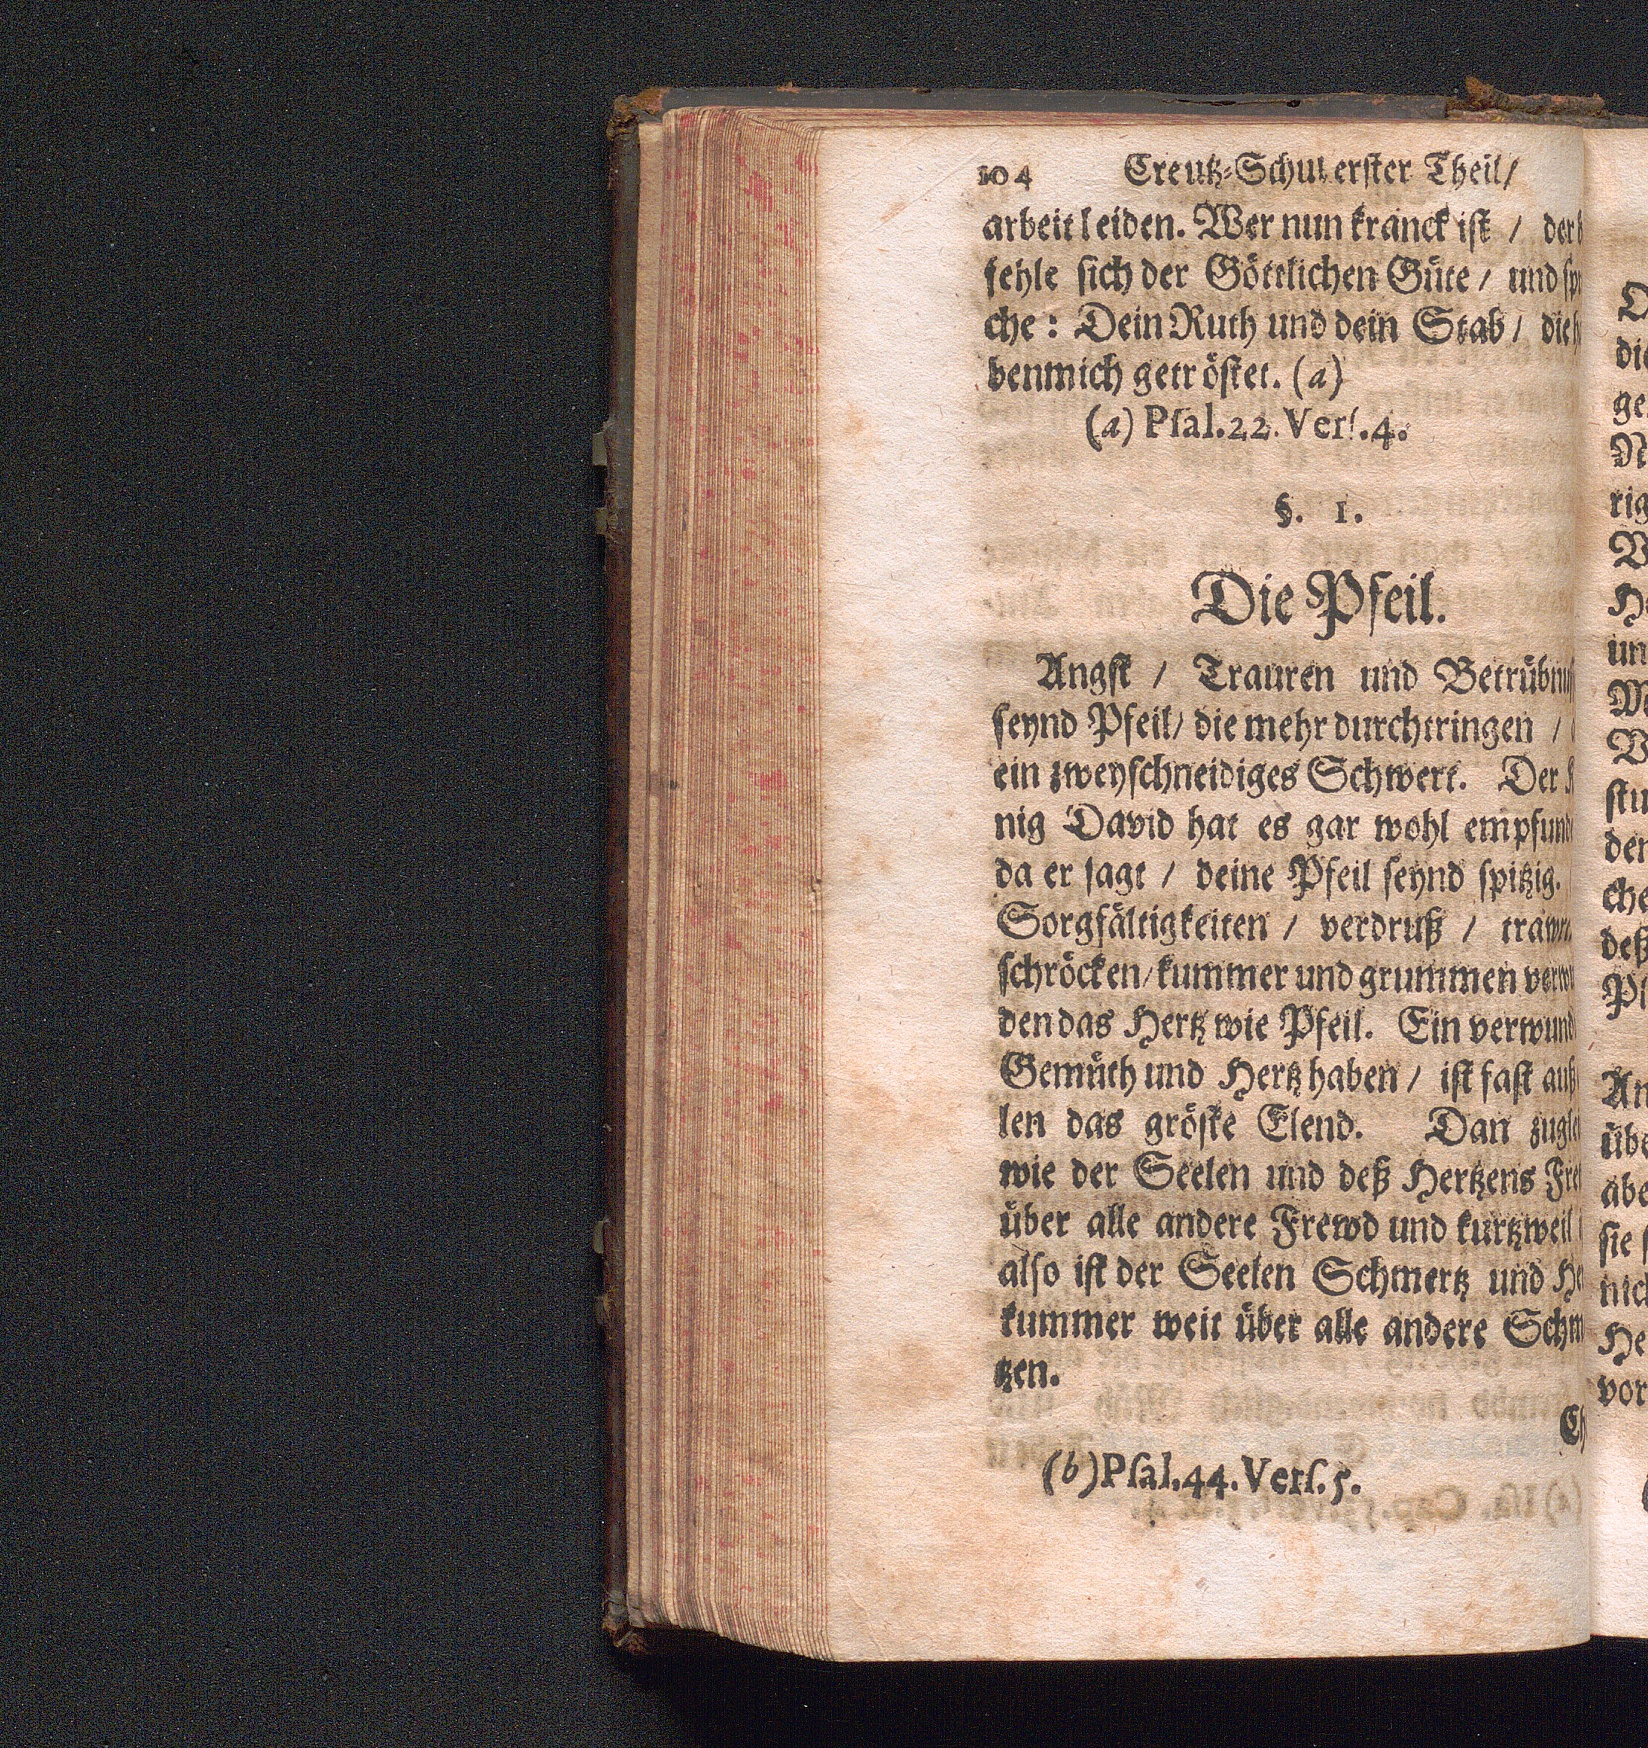 104 Creutz-Schul erster Theil/
arbeit leiden. Wer nun kranck ist / der
fehle sich der Göttlichen Güte / und
che: Dein Ruth und dein Stab / die
ben mich getröstet. (a)
(a) Psal. 22. Vers. 4.
§. 1.
Die Pfeil.
Angst / Trauren und Betrübnuß
seynd Pfeil / die mehr durchtringen /
ein zweyschneidiges Schwert. Der
nig David hat es gar wohl empfund
da er sagt / deine Pfeil seynd spitzig.
Sorgfältigkeiten / verdruß /
schröcken / kummer und grummen verwu
den das Hertz wie Pfeil. Ein verwund
Gemüth und Hertz haben / ist fast auß
len das gröste Elend. Dan zugle
wie der Seelen und deß Hertzens Fre
über alle andere Frewd und kurtzweil
also ist der Seelen Schmertz und He
kummer weit über alle andere Schm
tzen.
Ch
(b) Psal. 44. Vers. 5.
die
ge
rig
un
stu
den
che
deß
An
übe
abe
sie
nich
He
vor